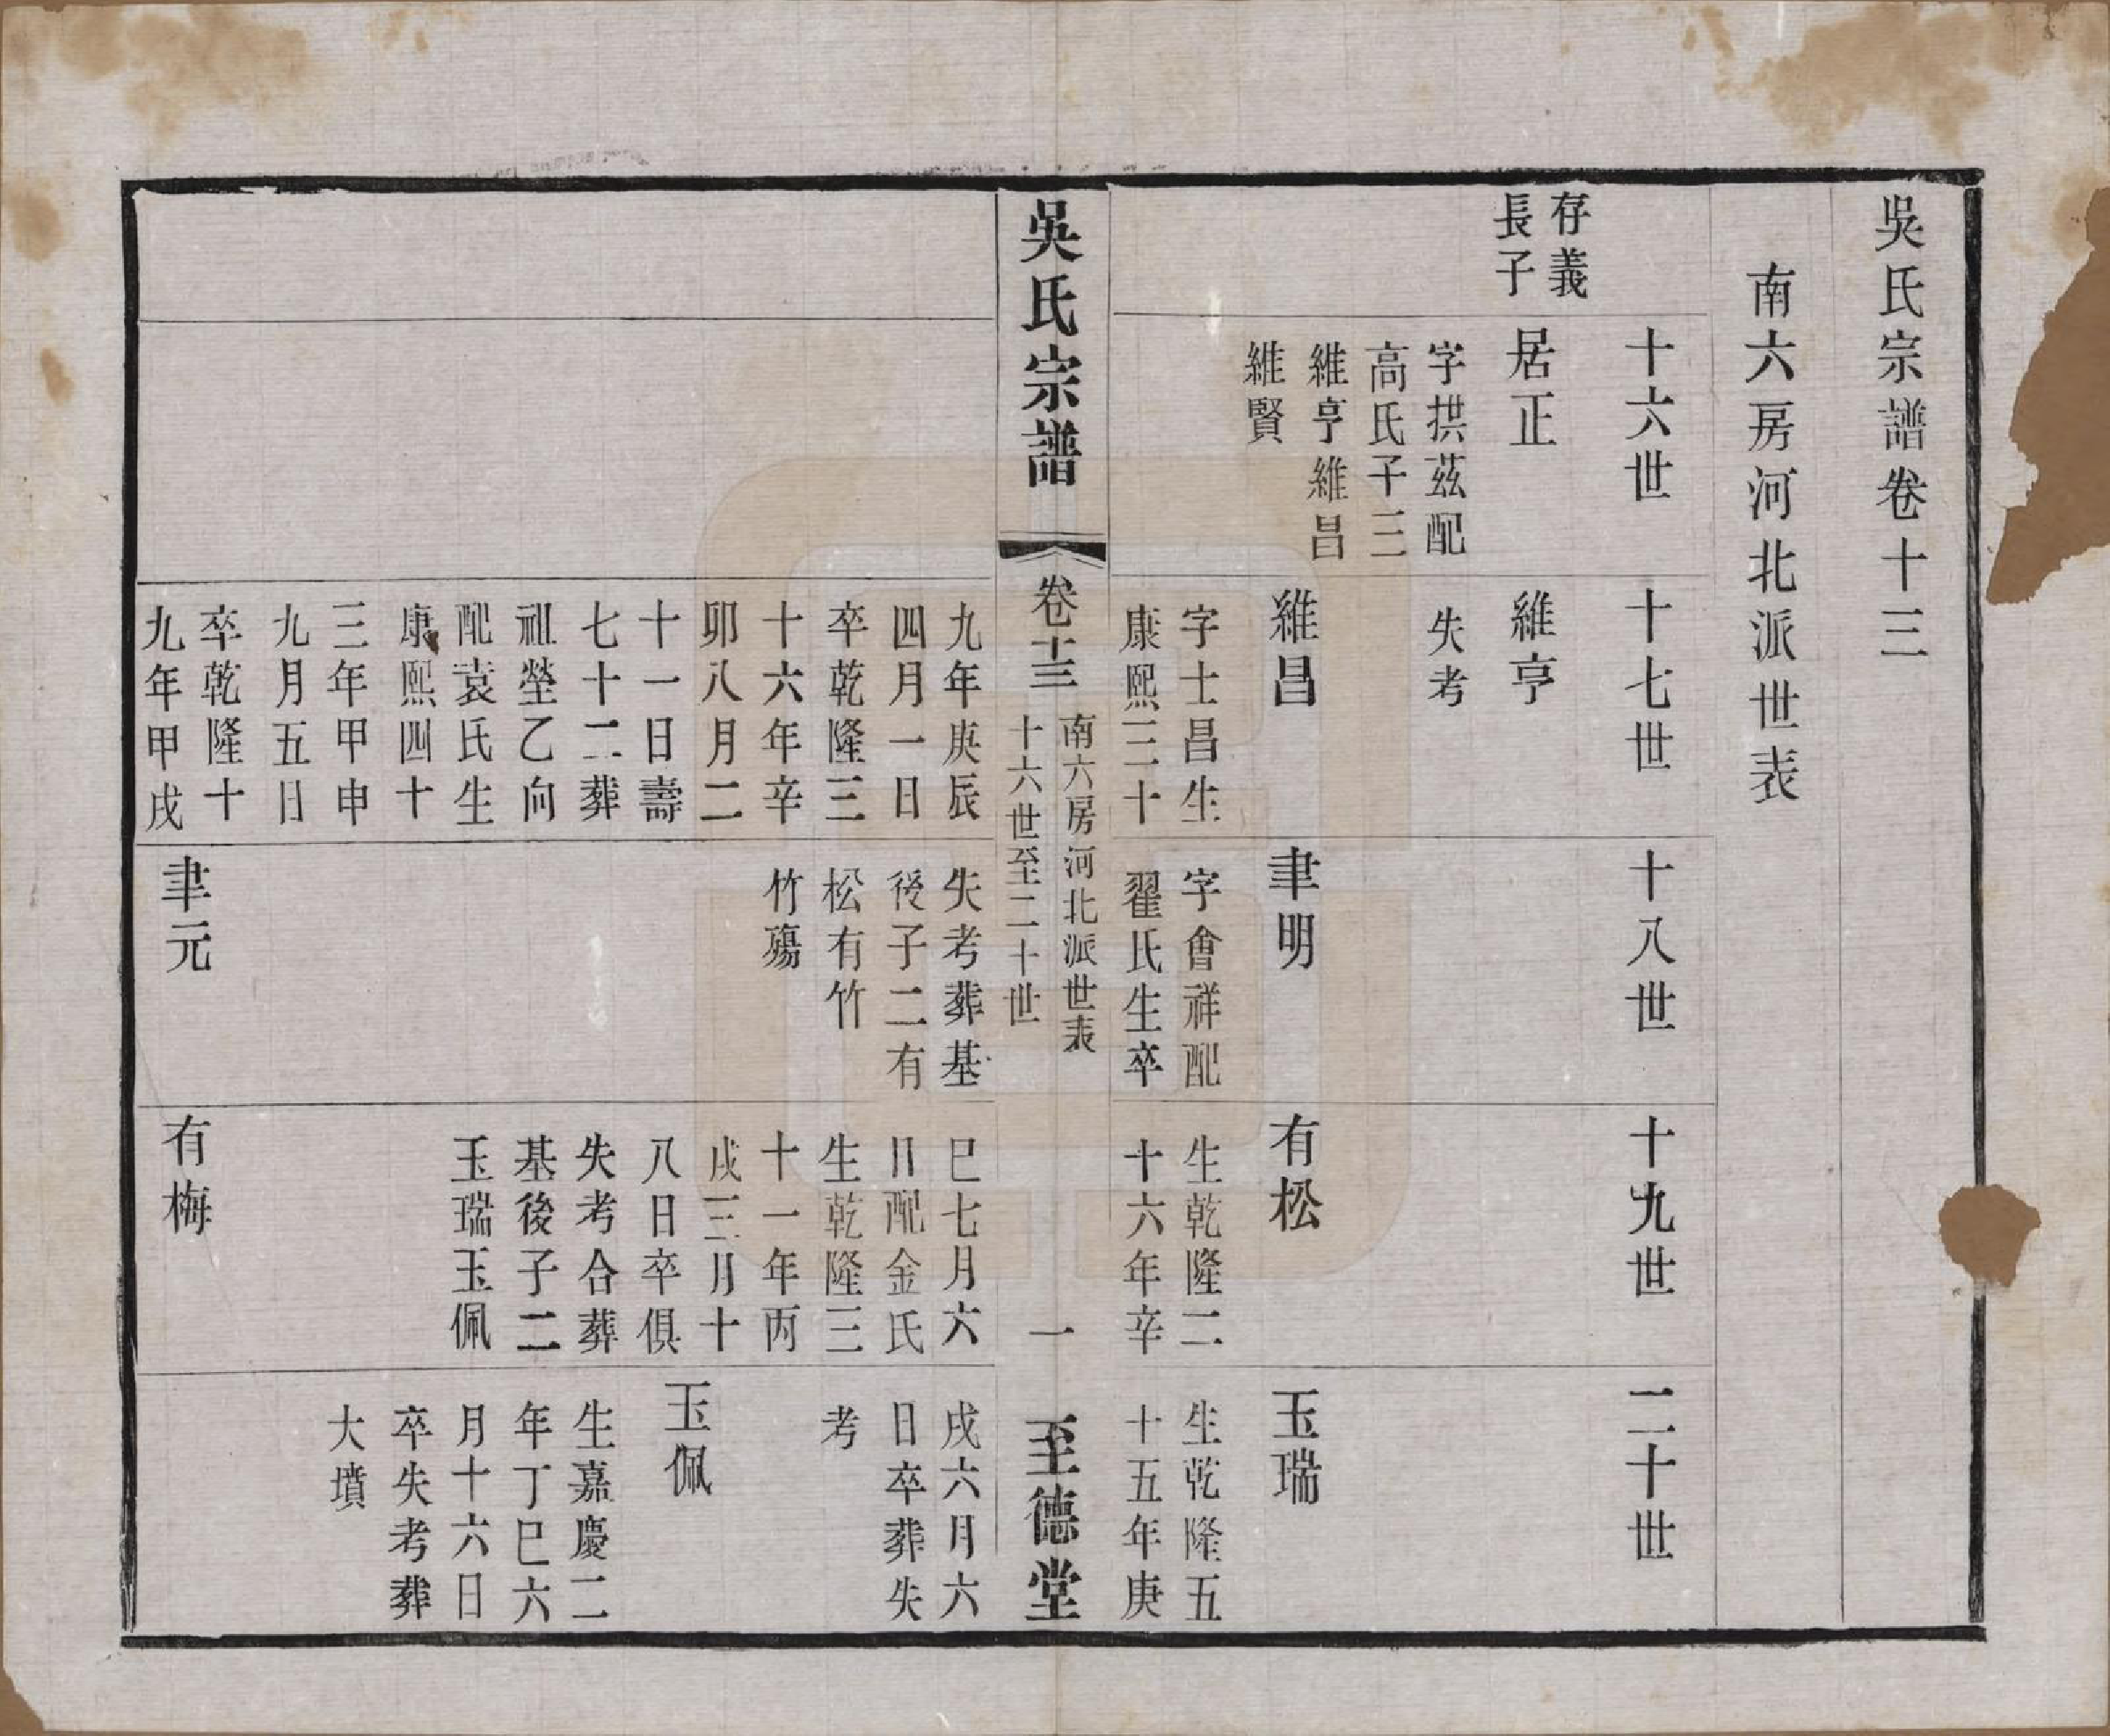 吳氏宗譜卷十三
南六房河北派世表
十六世
十七世
十八世
十九世
二十世
存義
長子
居正
字拱茲配
高氏子三
維亨維昌
維賢
維亨
失考
維昌
字士昌生
康熙三十
九年庚辰
四月一日
卒乾隆三
十六年辛
卯八月二
十一日壽
七十二葬
祖塋乙向
配袁氏生
康熙四十
三年甲申
九月五日
卒乾隆十
九年甲戌
聿明
字會祥配
翟氏生卒
失考葬基
後子二有
松有竹
竹殤
聿元
有松
生乾隆二
十六年辛
巳七月六
日配金氏
生乾隆三
十一年丙
戌三月十
八日卒俱
失考合葬
基後子二
玉瑞玉佩
有梅
玉瑞
生乾隆五
十五年庚
戌六月六
日卒葬失
考
玉佩
生嘉慶二
年丁巳六
月十六日
卒失考葬
大墳
吳氏宗譜
卷十三
南六房河北派世表
十六世至二十世
一
至德堂